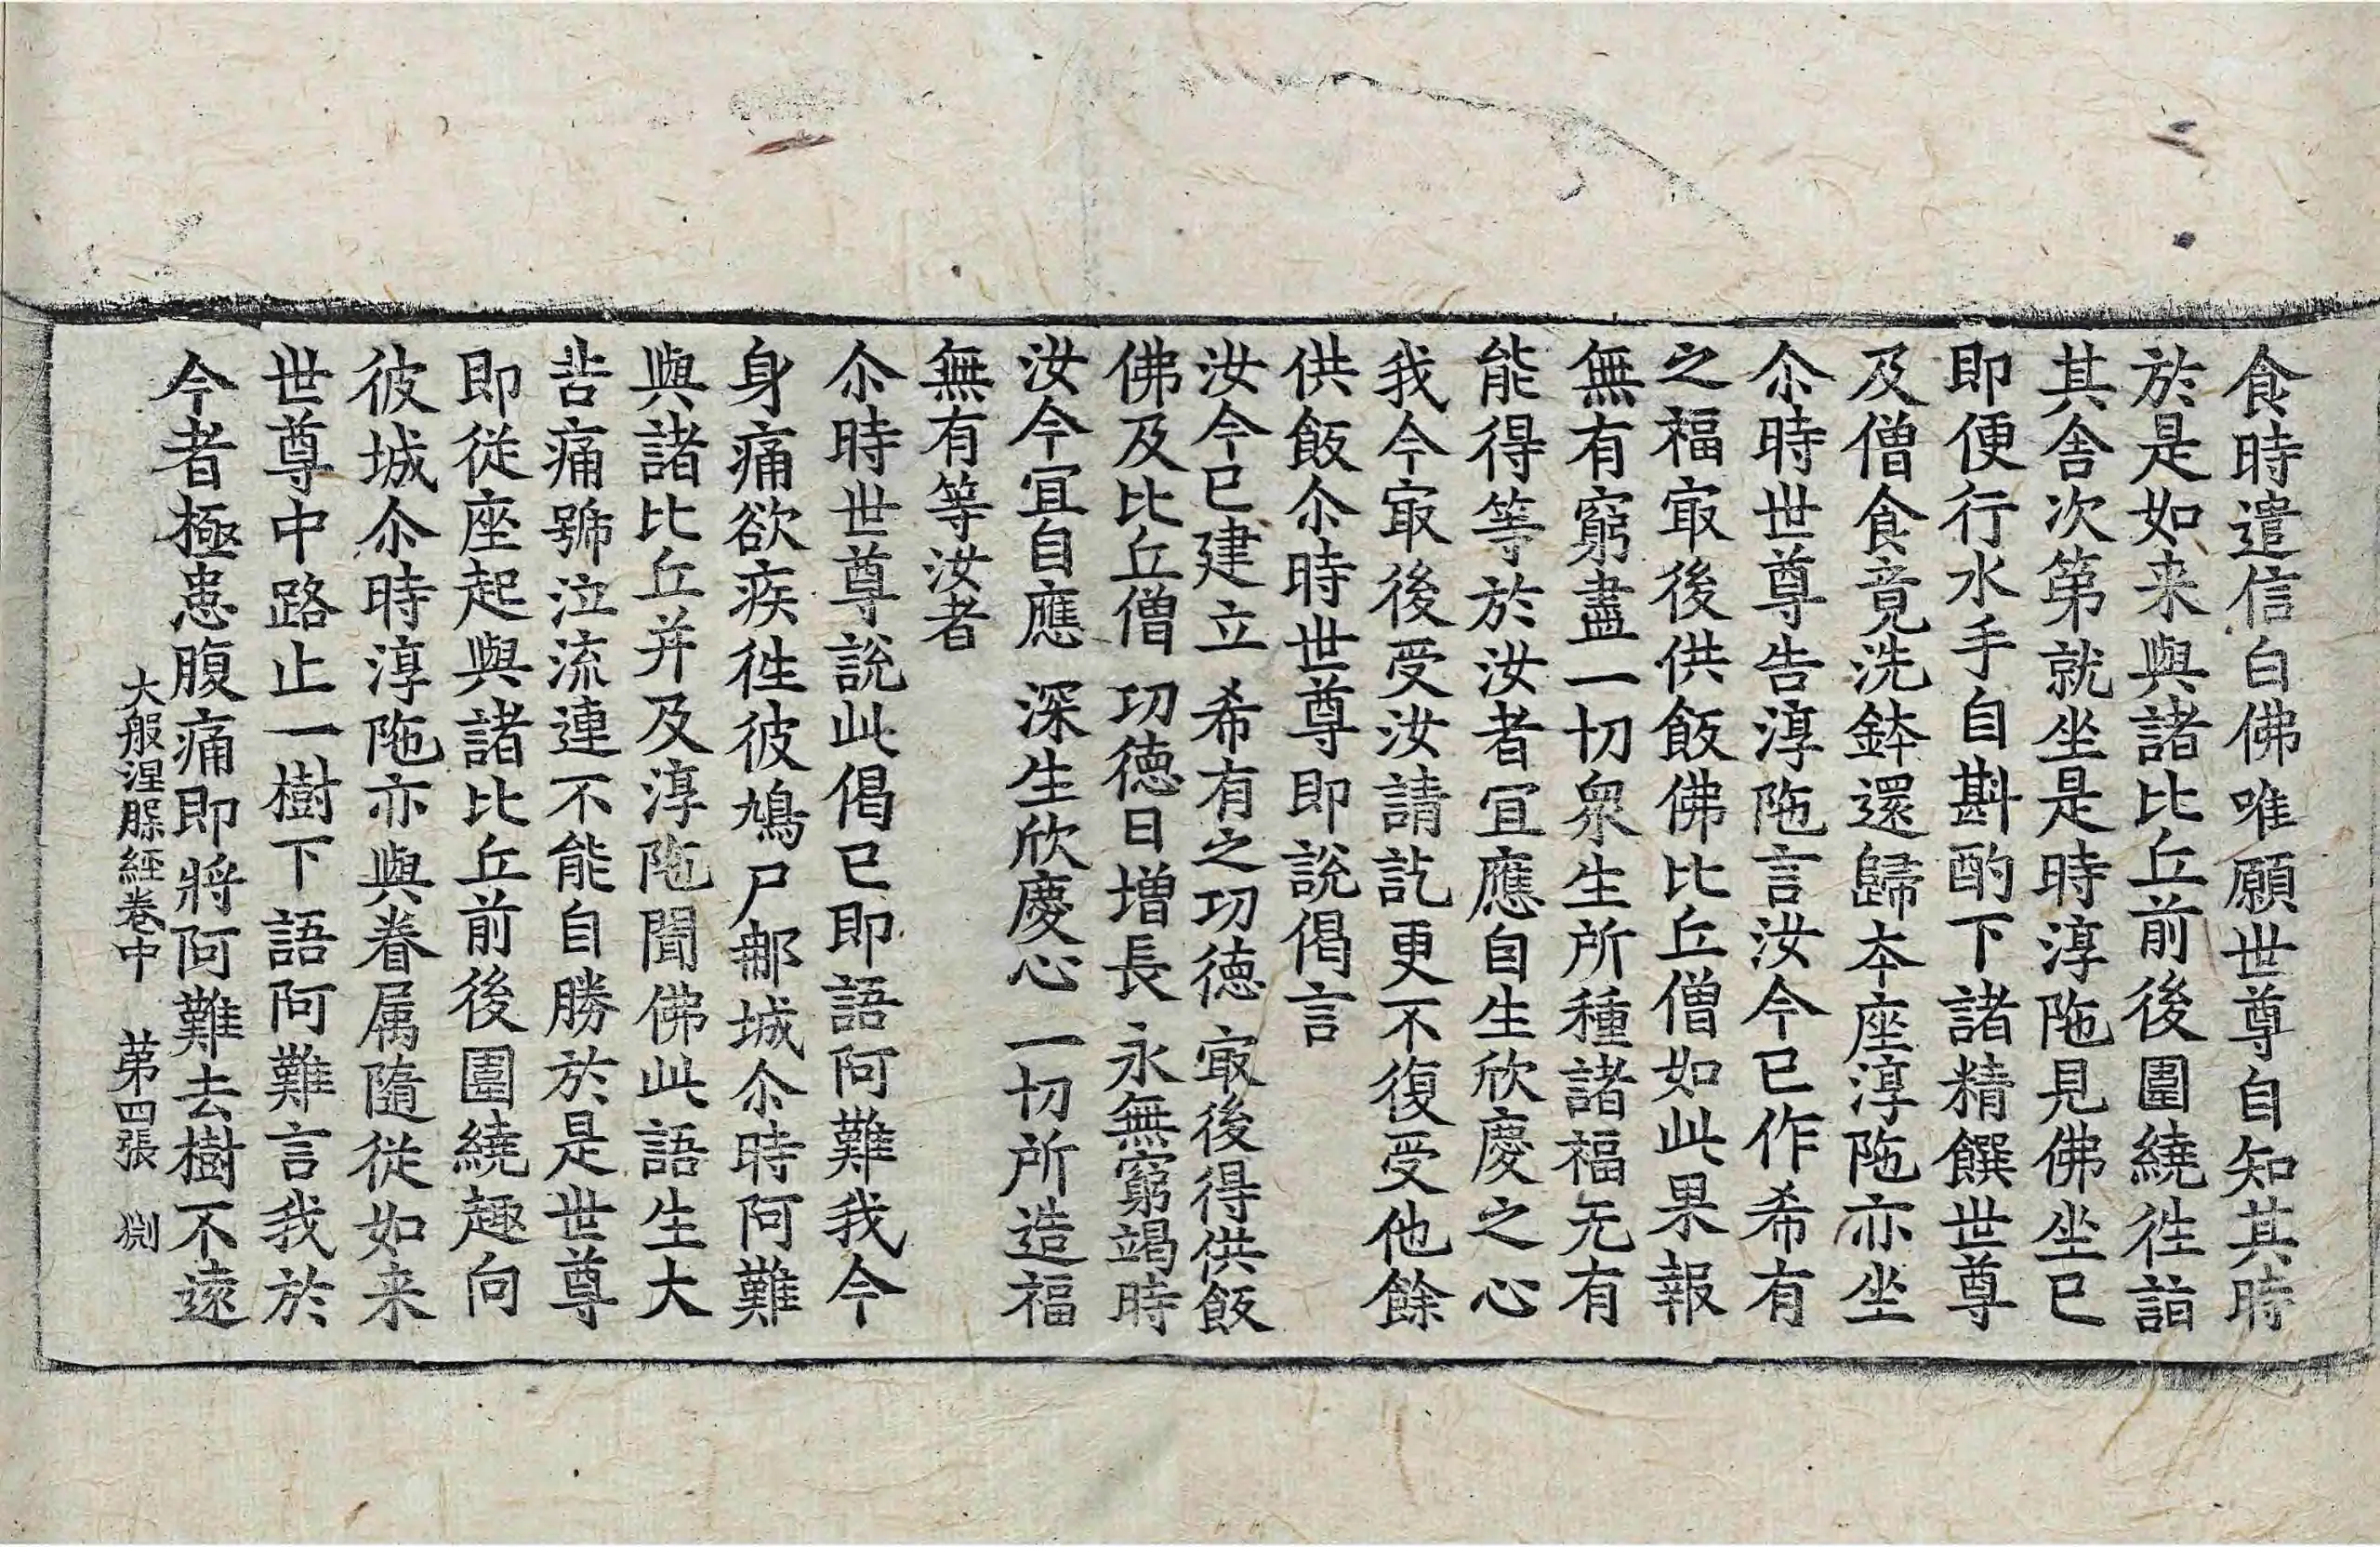 食時遣信白佛唯願世尊自知其時
於是如来與諸比丘前後圍繞徃詣
其舎次第就坐是時淳陁見佛坐巳
即便行水手自斟酌下諸精饌世尊
及僧食竟洗鉢還歸夲座淳陁亦坐
尒時世尊告淳陁言汝今巳作希有
之福㝡後供飯佛比丘僧如此果報
無有窮盡一切衆生所種諸福无有
能得等於汝者冝應自生欣慶之心
我今㝡後受汝請訖更不復受他餘
供飯尒時世尊即說偈言
汝今巳建立　希有之功德　㝡後得供飯
佛及比丘僧　功德日增長　永無窮竭時
汝今冝自應　深生欣慶心　一切所造福
無有等汝者
尒時世尊說此偈巳即語阿難我今
身痛欲疾徃彼鳩尸𨚗城尒時阿難
與諸比丘并及淳陁聞佛此語生大
悲痛號泣流連不能自勝於是世尊
即從座起與諸比丘前後圍繞趣向
彼城尒時淳陁亦與眷属隨從如来
世尊中路止一樹下語阿難言我於
今者極患腹痛即將阿難去樹不遠
大般涅槃経卷中　第四張　渕